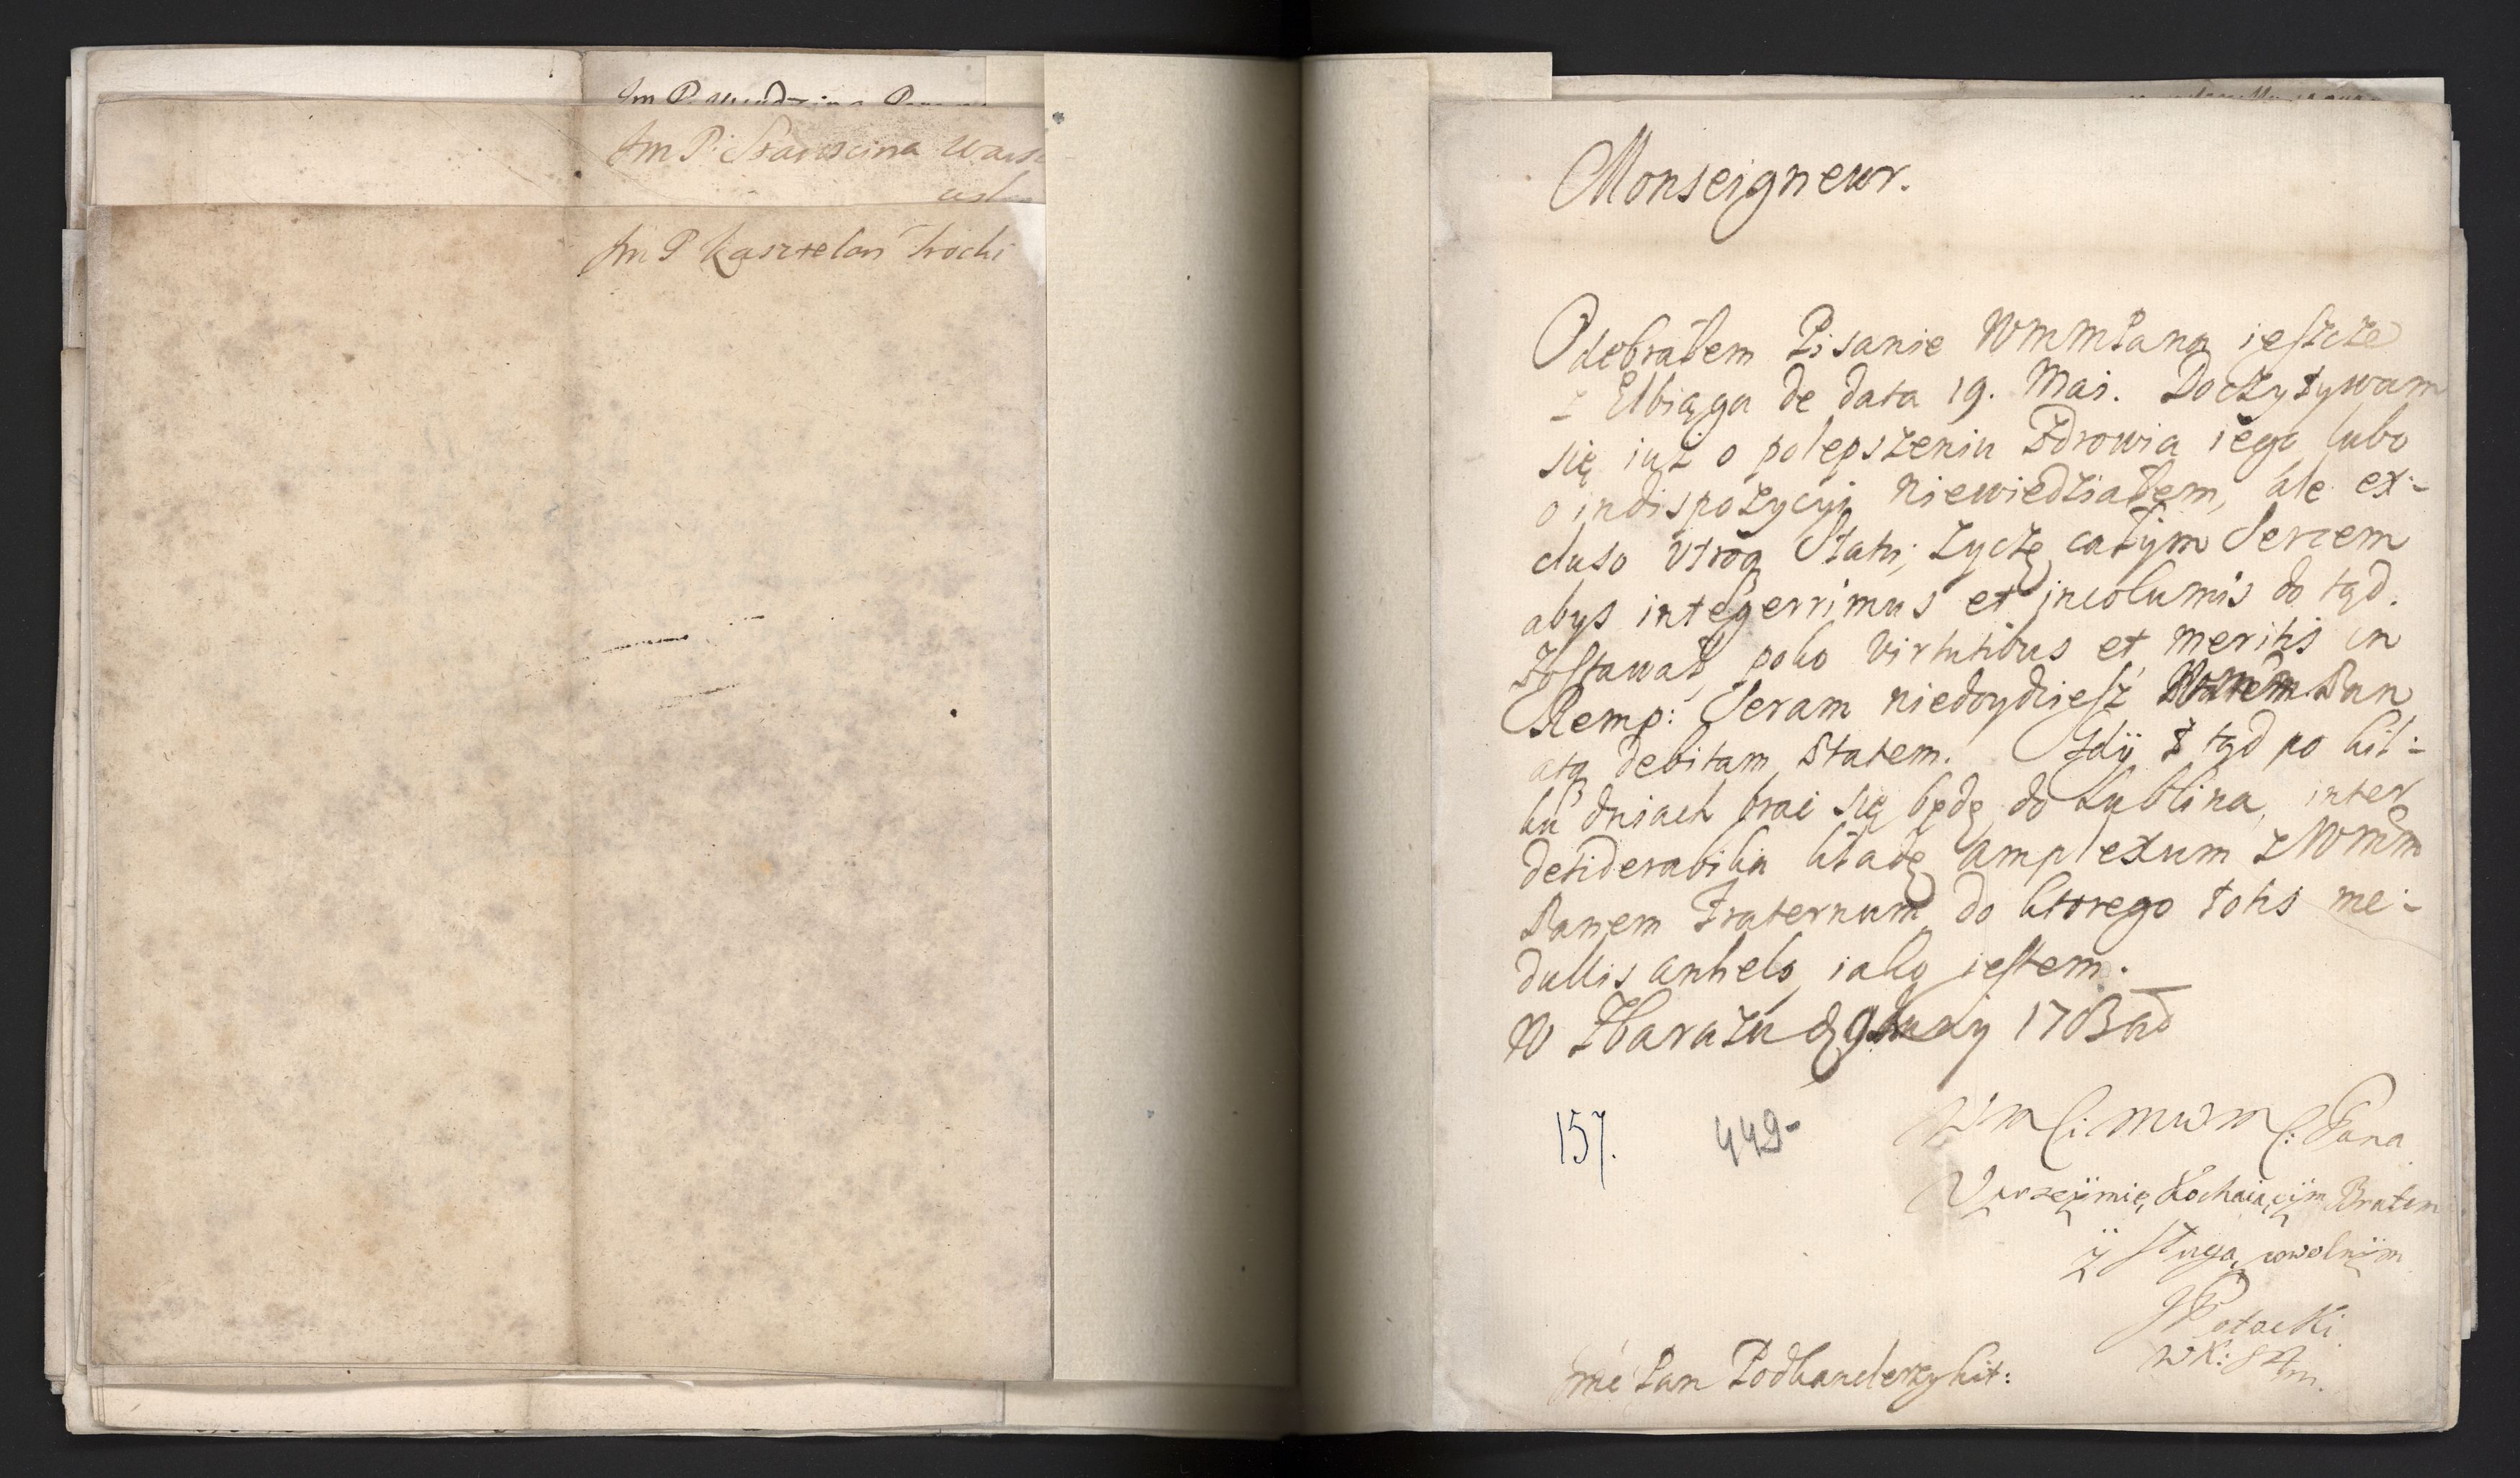 Im P. Starościna Warsz
Im P Kasztelan Trocki
Monseigneur.
Odebrałem Pisanie WMMPana ieszcze
z Elbiąga de data 19. Mai. Doczytywam
się iuż o polepszeniu Zdrowia iego lubo
o indispozycyi niewiedziałem, ale ex-
cluso utroq Statu; życzę całym Sercem
abyś integerrimus et incolumis do tąd.
Zostawał, poko virtutibus et meritis in
Remp: Seram niedoydziesz Pan
atq debitam Statem. Gdÿ z tąd po kil-
ku dniach brac się będę do Lublina, inter
desiderabilia kładę amplexum z WMM
Panem Fraternum, do ktorego totis me-
dullis anhelo, iako iestem.
W Zbarażu 1703 ad
157. 449-
WM(: MWM(: Pana
Uprzeÿmie Kochaiącÿm Bratem
ÿ sługą powolnÿm
JPotocki
WK: 
Jmć Pan Podkanclerzy Lit: